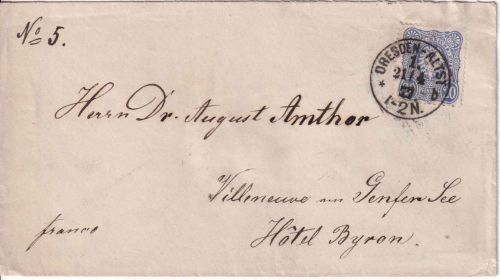 No 5.
* DRESDEN-ALTST. *
1.
21/4
1-2N.
Herrn Dr. August Amthor
Villeneuve am Genfer See
Hôtel Byron.
franco